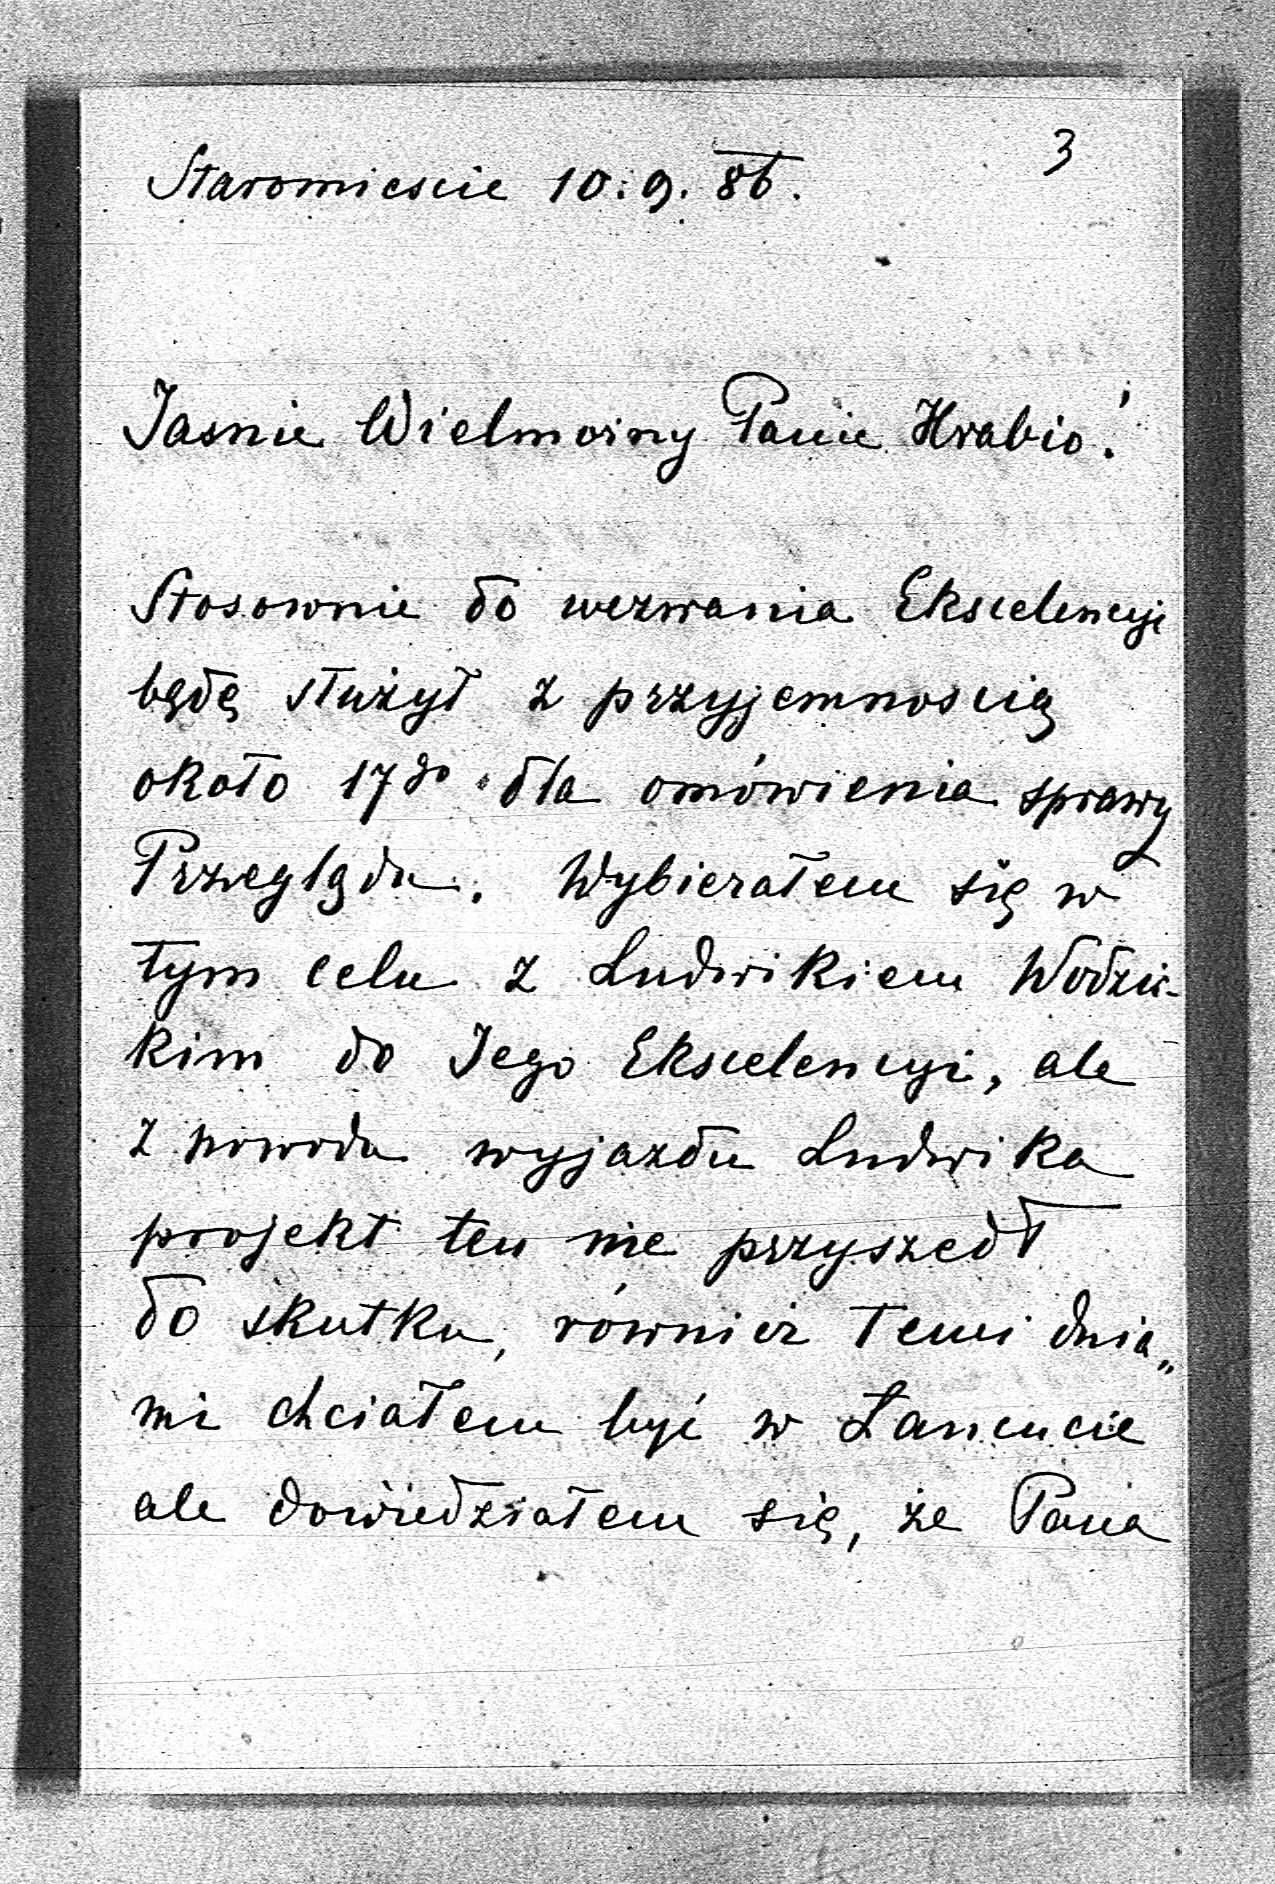 3
Staromiescie 10.9.86.
Jasnie Wielmożny Panie Hrabio!
Stosownie do wezwania Ekscelencyi
będę służył z przyjemnoscią
około 17go dla omówienia sprawy
Przeglądu. Wybierałem się w
tym celu z Ludwikiem Wodzic-
kim do Jego Ekscelencyi, ale
z powodu wyjazdu Ludwika
projekt ten nie przyszedł
do skutku, również temi dnia„
mi chciałem być w Łancucie
ale dowiedziałem się, że Pana